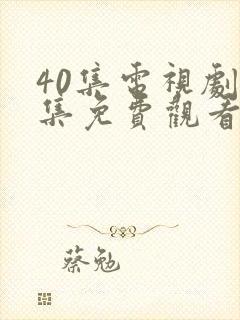 40集電視劇
集免費觀看
蔡勉